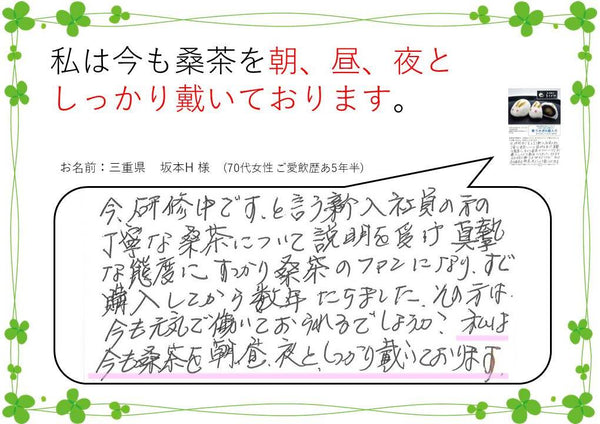 私は今も桑茶を朝、昼、夜と
しっかり戴いております。
お名前：三重県　坂本H 様　（70代女性 ご愛飲歴あ5年半）
今、研修中です、と言う新入社員の方の
丁寧な桑茶について説明を受け 真摯
な態度に すっかり桑茶のファンになり、すぐ
購入してから数年 たちました。その方は、
今も元気で働いておられるでしょうか？ 私は
今も桑茶を 朝、昼、夜と、しっかり戴いております。